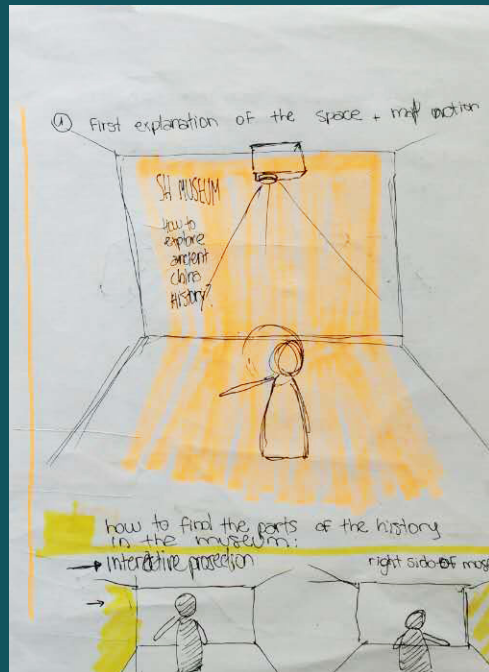 ① First explanation of the space + map action
SH MUSEUM
how to
explore
ancient
china
History?
how to find the parts of the history
in the museum:
→ interactive projection
right side of mus
→